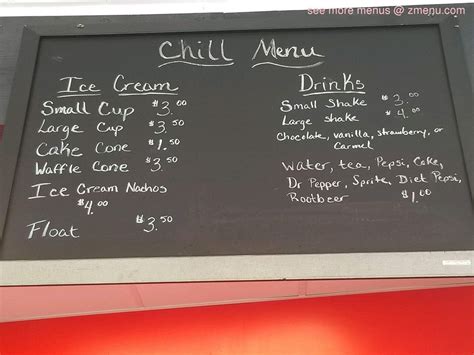 see more menus @ zmenu.com
Chill Menu
Ice Cream
Small Cup $3.00
Large Cup $3.50
Cake Cone $1.50
Waffle Cone $3.50
Ice Cream Nachos
$4.00
Float $3.50
Drinks
Small Shake $3.00
Large shake $4.00
Chocolate, Vanilla, Strawberry, or
Carmel
Water, tea, Pepsi, Coke,
Dr Pepper, Sprite, Diet Pepsi,
Rootbeer $1.00